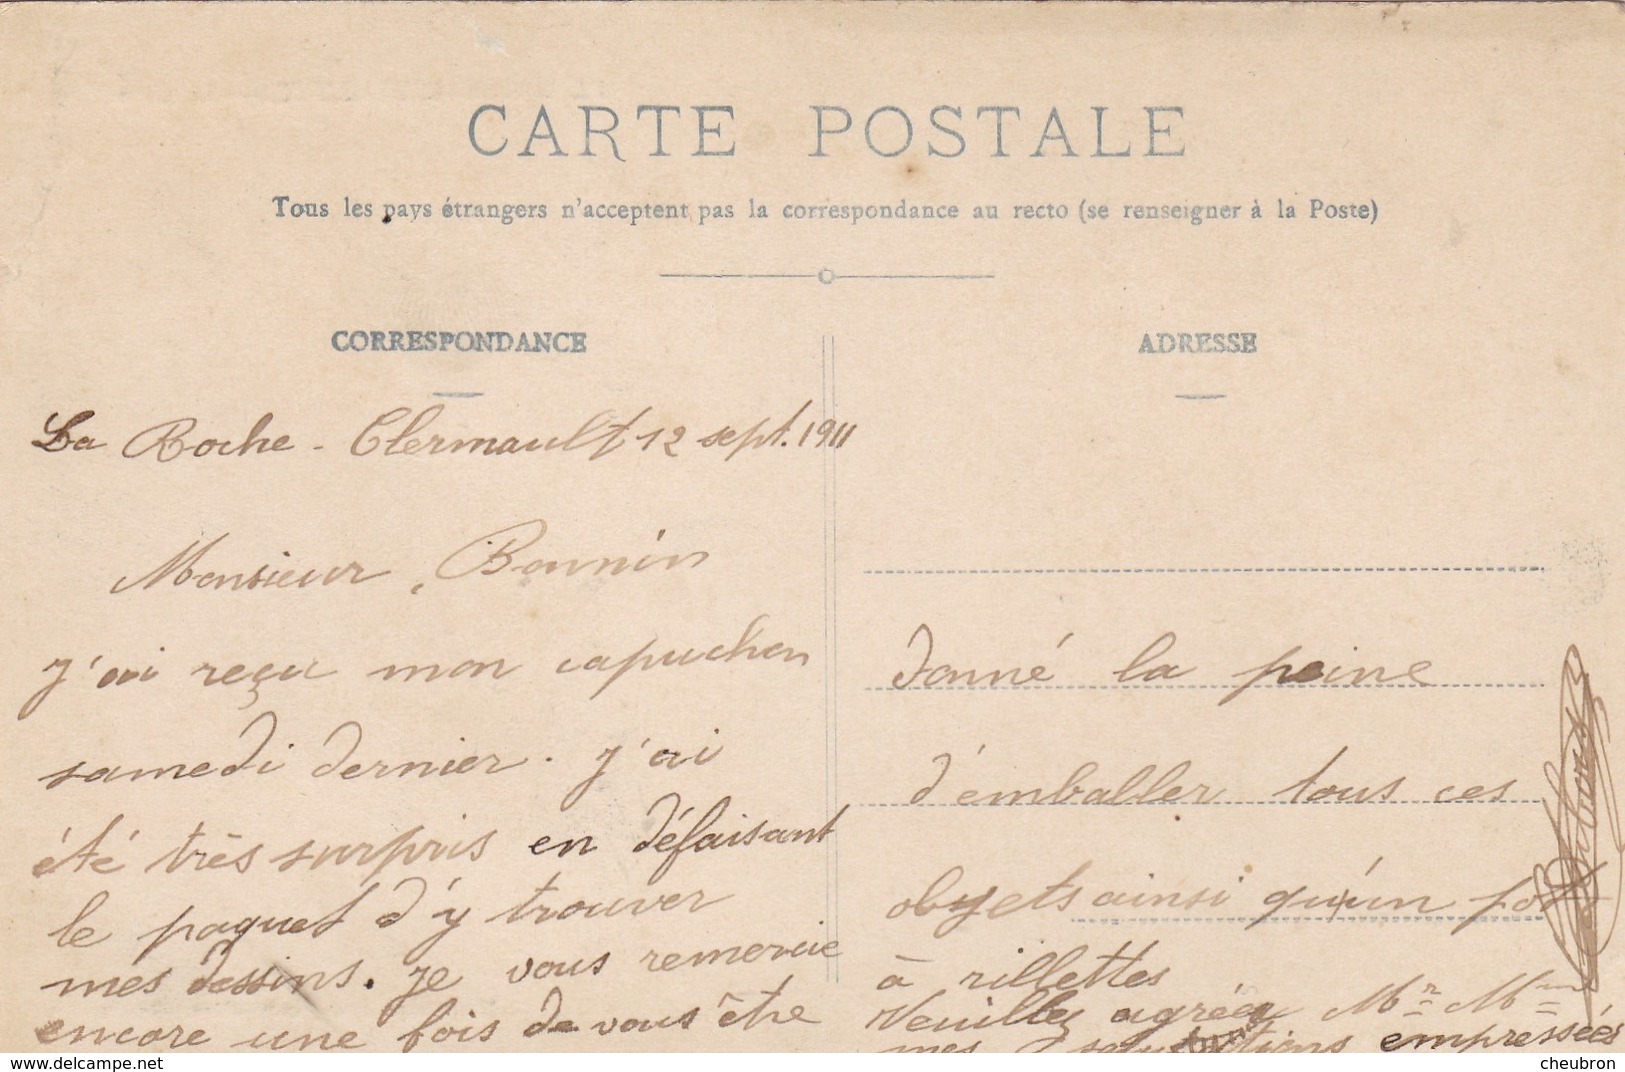 CARTE POSTALE
Tous les pays étrangers n'acceptent pas la correspondance au recto (se renseigner à la Poste)
CORRESPONDANCE
La Roche - Clermault 12 sept. 1911
Monsieur Bonnin
J'ai reçu mon capuchon
samedi dernier. J'ai
été très surpris en défaisant
le paquet d'y trouver
mes dessins. Je vous remercie
encore une fois de vous être
ADRESSE
donné la peine
d'emballer tous ces
objets ainsi qu'un pot
à rillettes
Veuillez agréer Mr Mme
mes salutations empressées
delcampe.net
cheubron